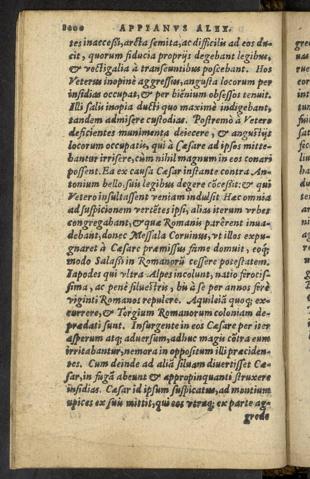 APPIANVS ALEX.
tes inaccessi, arcta semita, ac difficilis ad eos du-
cit, quorum fiducia proprijs degebant legibus,
& vectigalia à transeuntibus poscebant. Hos
Veterus inopinè aggressus, angusta locorum per
insidias occupat, & per biēnium obsessos tenuit.
Illi salis inopia ducti quo maximè indigebant,
tandem admisere custodias. Postremò à Vetero
deficientes munimenta deiecere, & angustijs
locorum occupatis, qui à Cæsare ad ipsos mitte-
bantur irrisere, cùm nihil magnum in eos conari
possent. Ea ex causa Cæsar instante contra An-
tonium bello, suis legibus degere cōcessit: & qui
Vetero insultassent veniam indulsit Hæc omnia
ad suspicionem vertētes ipsi, alias iterum vrbes
congregabant, & quæ Romanis parêrent inua-
debant, donec Messala Coruinus, vt illos expu-
gnaret à Cæsare præmissus fame domuit, eoq́;
modo Salassi in Romanorū cessere potestatem.
Iapodes qui vltra Alpes incolunt, natio ferocis-
sima, ac penè siluestris, bis à se per annos ferè
viginti Romanos repulere. Aquileiā quoq; ex-
currere, & Tergium Romanorum coloniam de-
prædati sunt. Insurgente in eos Cæsare per iter
asperum atq; aduersum, adhuc magis cōtra eum
irritabantur, nemora in oppositum illi præciden-
tes. Cum deinde ad aliā siluam diuertisset Cæ-
sar, in fugā abeunt & appropinquanti struxere
insidias. Cæsar id ipsum suspicatus, ad montium
apices ex suis mittit, qui eos vtraq; ex parte ag-
grede